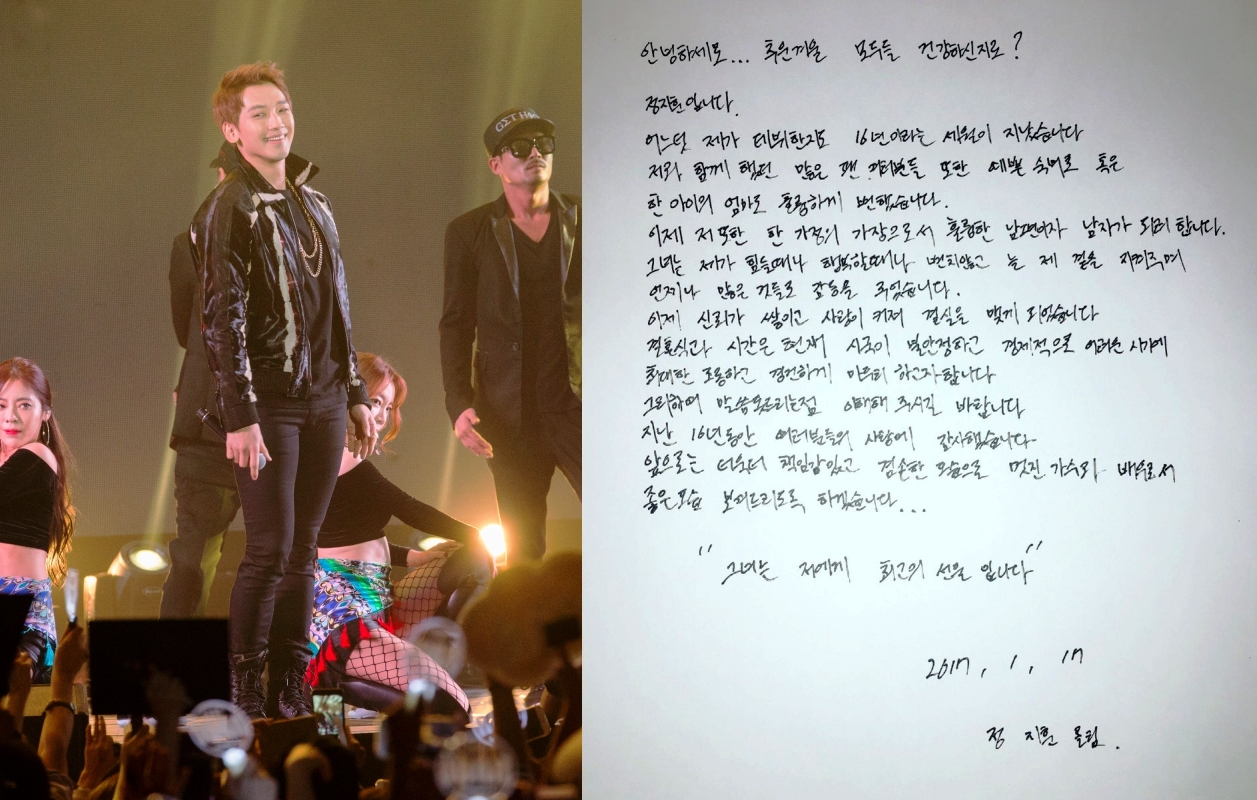 GET H
안녕하세요... 추운겨울 모두들 건강하신지요?
정지훈입니다.
어느덧 제가 데뷔한지도 16년이라는 세월이 지났습니다
저와 함께 했던 많은 팬 여러분들 또한 예쁜 숙녀로 혹은
한 아이의 엄마로 훌륭하게 변했습니다.
이제 저또한 한 가정의 가장으로서 훌륭한 남편이자 남자가 되려 합니다.
그녀는 제가 힘들때나 행복할때나 변치않고 늘 제 곁을 지켜주며
언제나 많은 것들로 감동을 주었습니다.
이제 신뢰가 쌓이고 사랑이 커져 결실을 맺게 되었습니다
결혼식과 시간은 현재 시국이 불안정하고 경제적으로 어려운 시기에
최대한 조용하고 경건하게 마무리 하고자합니다
그리하여 말씀못드리는점 이해해 주시길 바랍니다
지난 16년동안 여러분들의 사랑에 감사했습니다
앞으로는 더욱더 책임감있고 겸손한 모습으로 멋진 가수와 배우로서
좋은모습 보여드리도록 하겠습니다...
"그녀는 저에게 최고의 선물 입니다"
2017. 1. 17
정 지훈 올림.